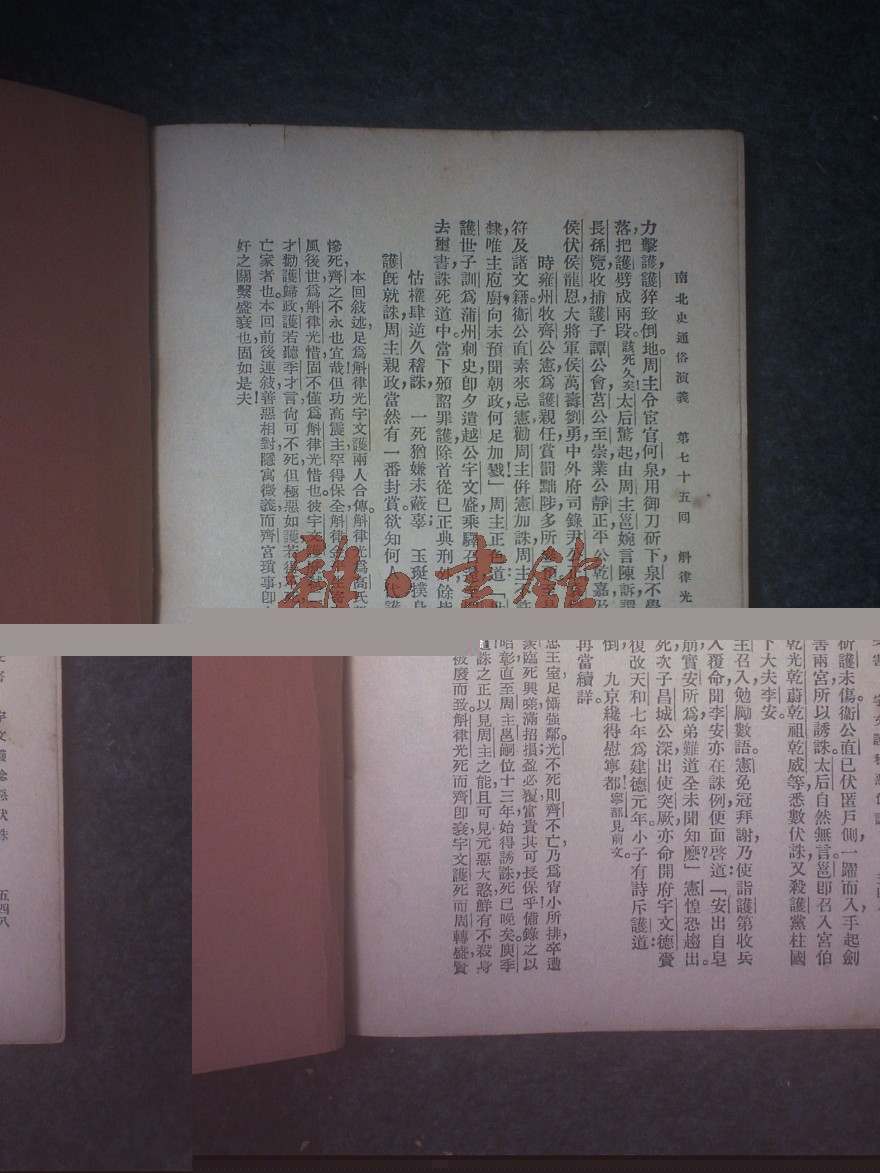 南北史通俗演義　第七十五回　斛律光
力擊護護猝致倒地周主令宦官何泉用御刀斫下泉不學
落把護劈成兩段該死久矣太后驚起由周主邕婉言陳訴謂
長孫覽收捕護子譚公會莒公至崇業公靜正平公乾嘉及
侯伏侯龍恩大將軍侯萬壽劉勇中外府司錄尹公
時雍州牧齊公憲爲護親任賞罰黜陟多所
符及諸文籍衞公直素來忌憲勸周主倂憲加誅周主不許
隸唯主庖廚向未預聞朝政何足加戮」周主正色道
護世子訓爲蒲州刺史卽夕遣越公宇文盛乘驛召
去璽書誅死道中當下頒詔罪護除首從已正典刑外餘
怙權肆逆久稽誅　一死猶嫌未蔽辜　玉珽撲身
護旣就誅周主親政當然有一番封賞欲知何人代護
本回敘述足爲斛律光宇文護兩人合傳斛律光爲高氏
慘死齊之不永也宜哉但功高震主罕得保全斛律金
風後世爲斛律光惜固不僅爲斛律光惜也彼宇文
才勸護歸政護若聽季才言尙可不死但極惡如護若得
亡家者也本回前後連敘善惡相對隱寓微義而齊宮瑣事卽
奸之關繫盛衰也固如是夫
文護稔惡伏誅　五四八
斫護未傷衞公直已伏匿戶側一躍而入手起劍
害兩宮所以誘誅太后自然無言邕卽召入宮伯
乾光乾蔚乾祖乾威等悉數伏誅又殺護黨柱國
下大夫李安
主召入勉勵數語憲免冠拜謝乃使詣護第收兵
入覆命聞李安亦在誅例便面啓道「安出自皂
崩實安所爲弟難道全未聞知麽」憲惶恐趨出
死次子昌城公深出使突厥亦命開府宇文德賚
復改天和七年爲建德元年小子有詩斥護道
倒　九京纔得慰寧都寧都見前文
再當續詳
忠王室足懾強鄰光不死則齊不亡乃爲宵小所排卒遭
羨臨死興嗟滿招損盈必覆富貴其可長保乎備錄之以
昭彰直至周主邕嗣位十三年始得誘誅死已晚矣庾季
誅之正以見周主之能且可見元惡大憝鮮有不殺身
被廢而致斛律光死而齊卽衰宇文護死而周轉盛賢